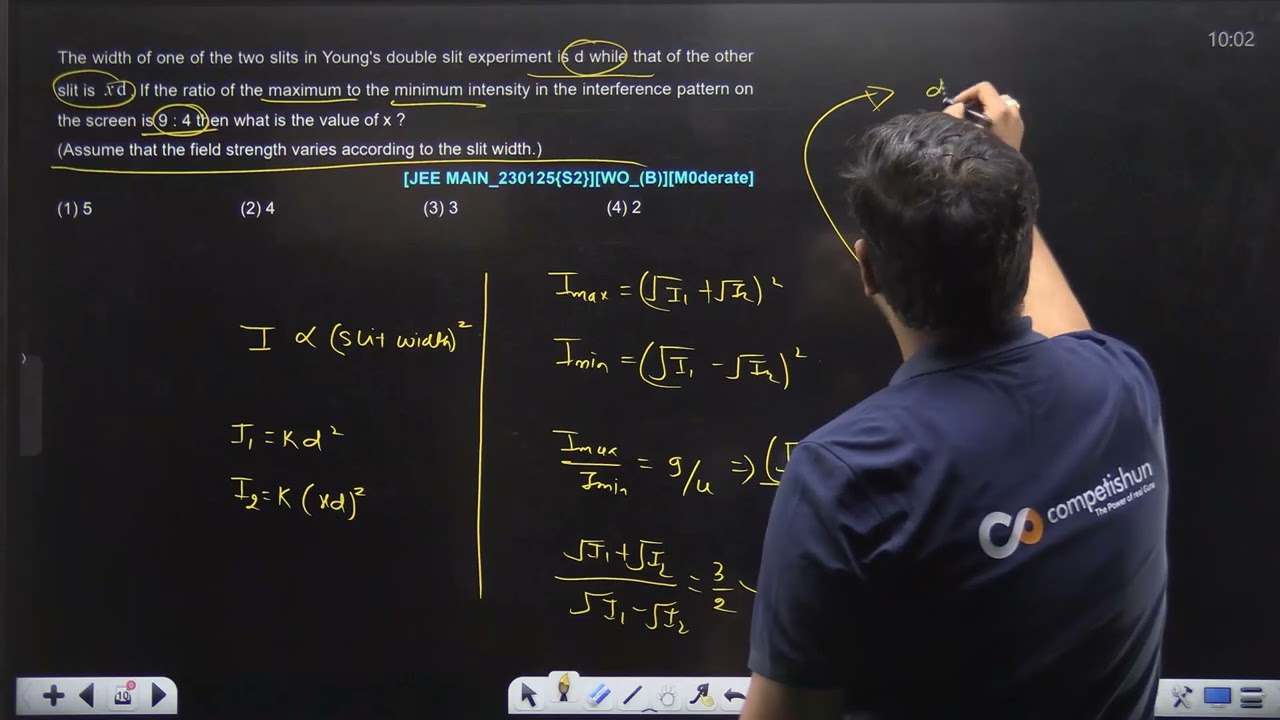 10:02
The width of one of the two slits in Young's double slit experiment is d while that of the other
slit is xd. If the ratio of the maximum to the minimum intensity in the interference pattern on
the screen is 9 : 4 then what is the value of x ?
(Assume that the field strength varies according to the slit width.)
[JEE MAIN_230125{S2}][WO_(B)][M0derate]
(1) 5 (2) 4 (3) 3 (4) 2
d
I ∝ (slit width)²
I₁ = Kd²
I₂ = K(xd)²
Imax = (√I₁ + √I₂)²
Imin = (√I₁ - √I₂)²
Imax/Imin = 9/4 => (√
√I₁+√I₂/√I₁-√I₂ = 3/2
competishun
The Power of real Guru
10